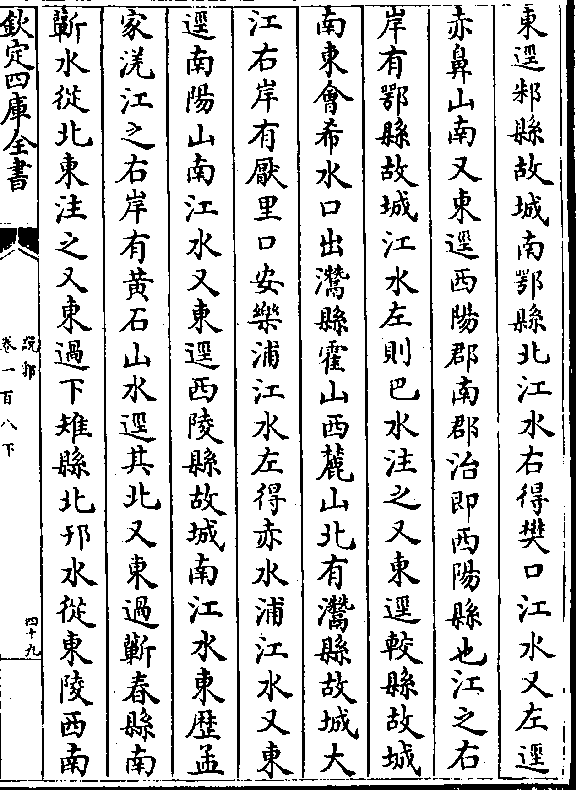 東逕邾縣故城南鄂縣北江水右得樊口江水又左逕
赤鼻山南又東逕西陽郡南郡治即西陽縣也江之右
岸有鄂縣故城江水左則巴水注之又東逕軑縣故城
南東會希水口出灊縣霍山西麓山北有灊縣故城大
江右岸有厭里口安樂浦江水左得赤水浦江水又東
逕南陽山南江水又東逕西陵縣故城南江水東歴孟
家溠江之右岸有黄石山水逕其北又東過蘄春縣南
蘄水從北東注之又東過下雉縣北邘水從東陵西南
欽定四庫全書
說郛
卷一百八下
四十九